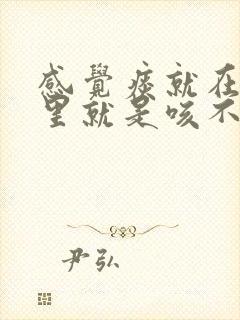 感覺痰就在
里就是咳不
尹弘